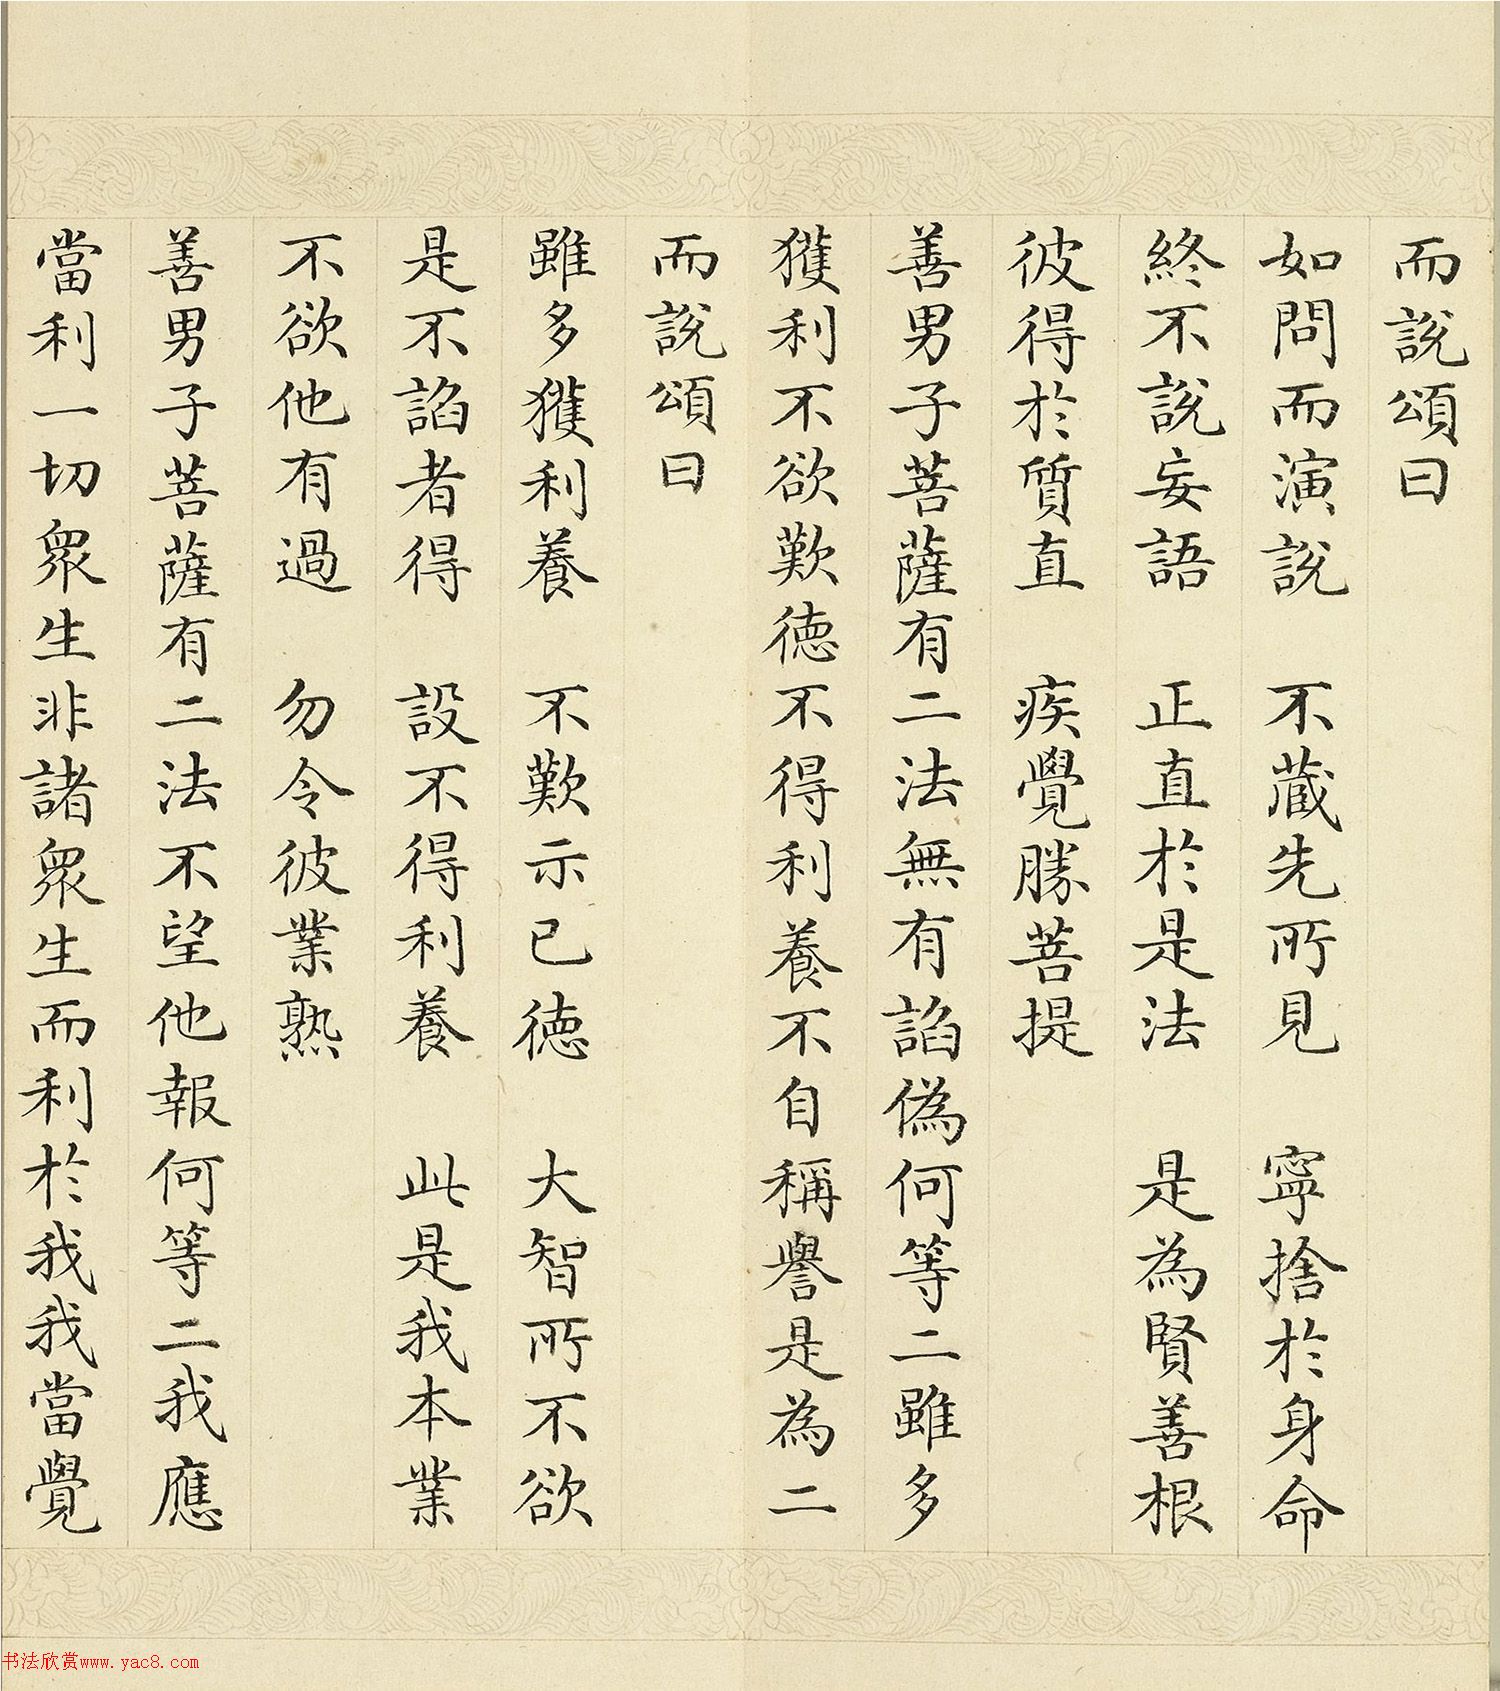 而說頌曰
如問而演說　不蔵先所見　寧捨於身命
終不說妄語　正直於是法　是為賢善根
彼得於質直　疾覺勝菩提
善男子菩薩有二法無有諂偽何等二雖多
獲利不欲歎徳不得利養不自稱譽是為二
而說頌曰
雖多獲利養　不歎示已徳　大智所不欲
是不諂者得　設不得利養　此是我本業
不欲他有過　勿令彼業熟
善男子菩薩有二法不望他報何等二我應
當利一切眾生非諸眾生而利於我我當覺
书法欣赏www.yac8.com